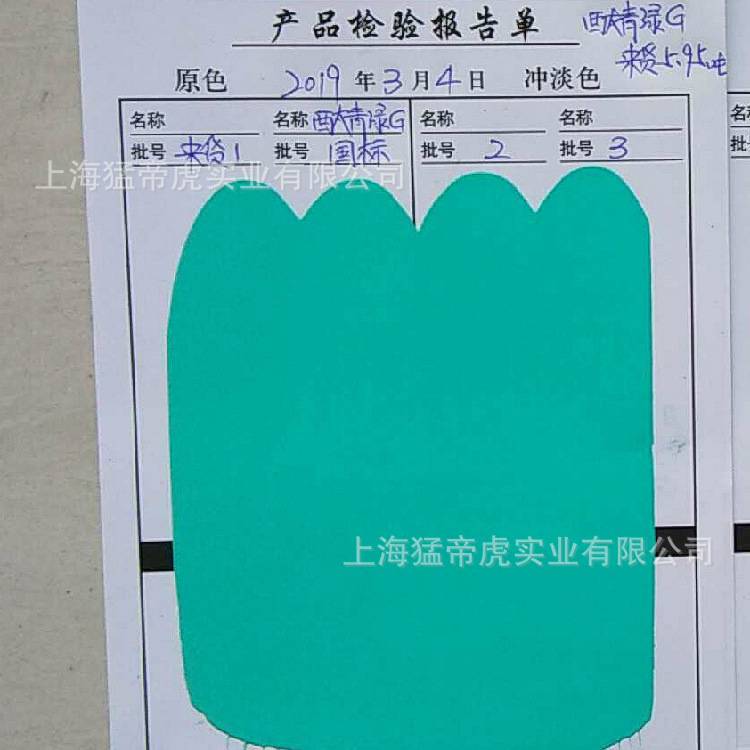 产品检验报告单
酞青绿G
来货5.95吨
原色 2019年3月4日 冲淡色
名称 名称 酞青绿G 名称 名称
批号 来货1 批号 国标 批号 2 批号 3
上海猛帝虎实业有限公司
上海猛帝虎实业有限公司
批号